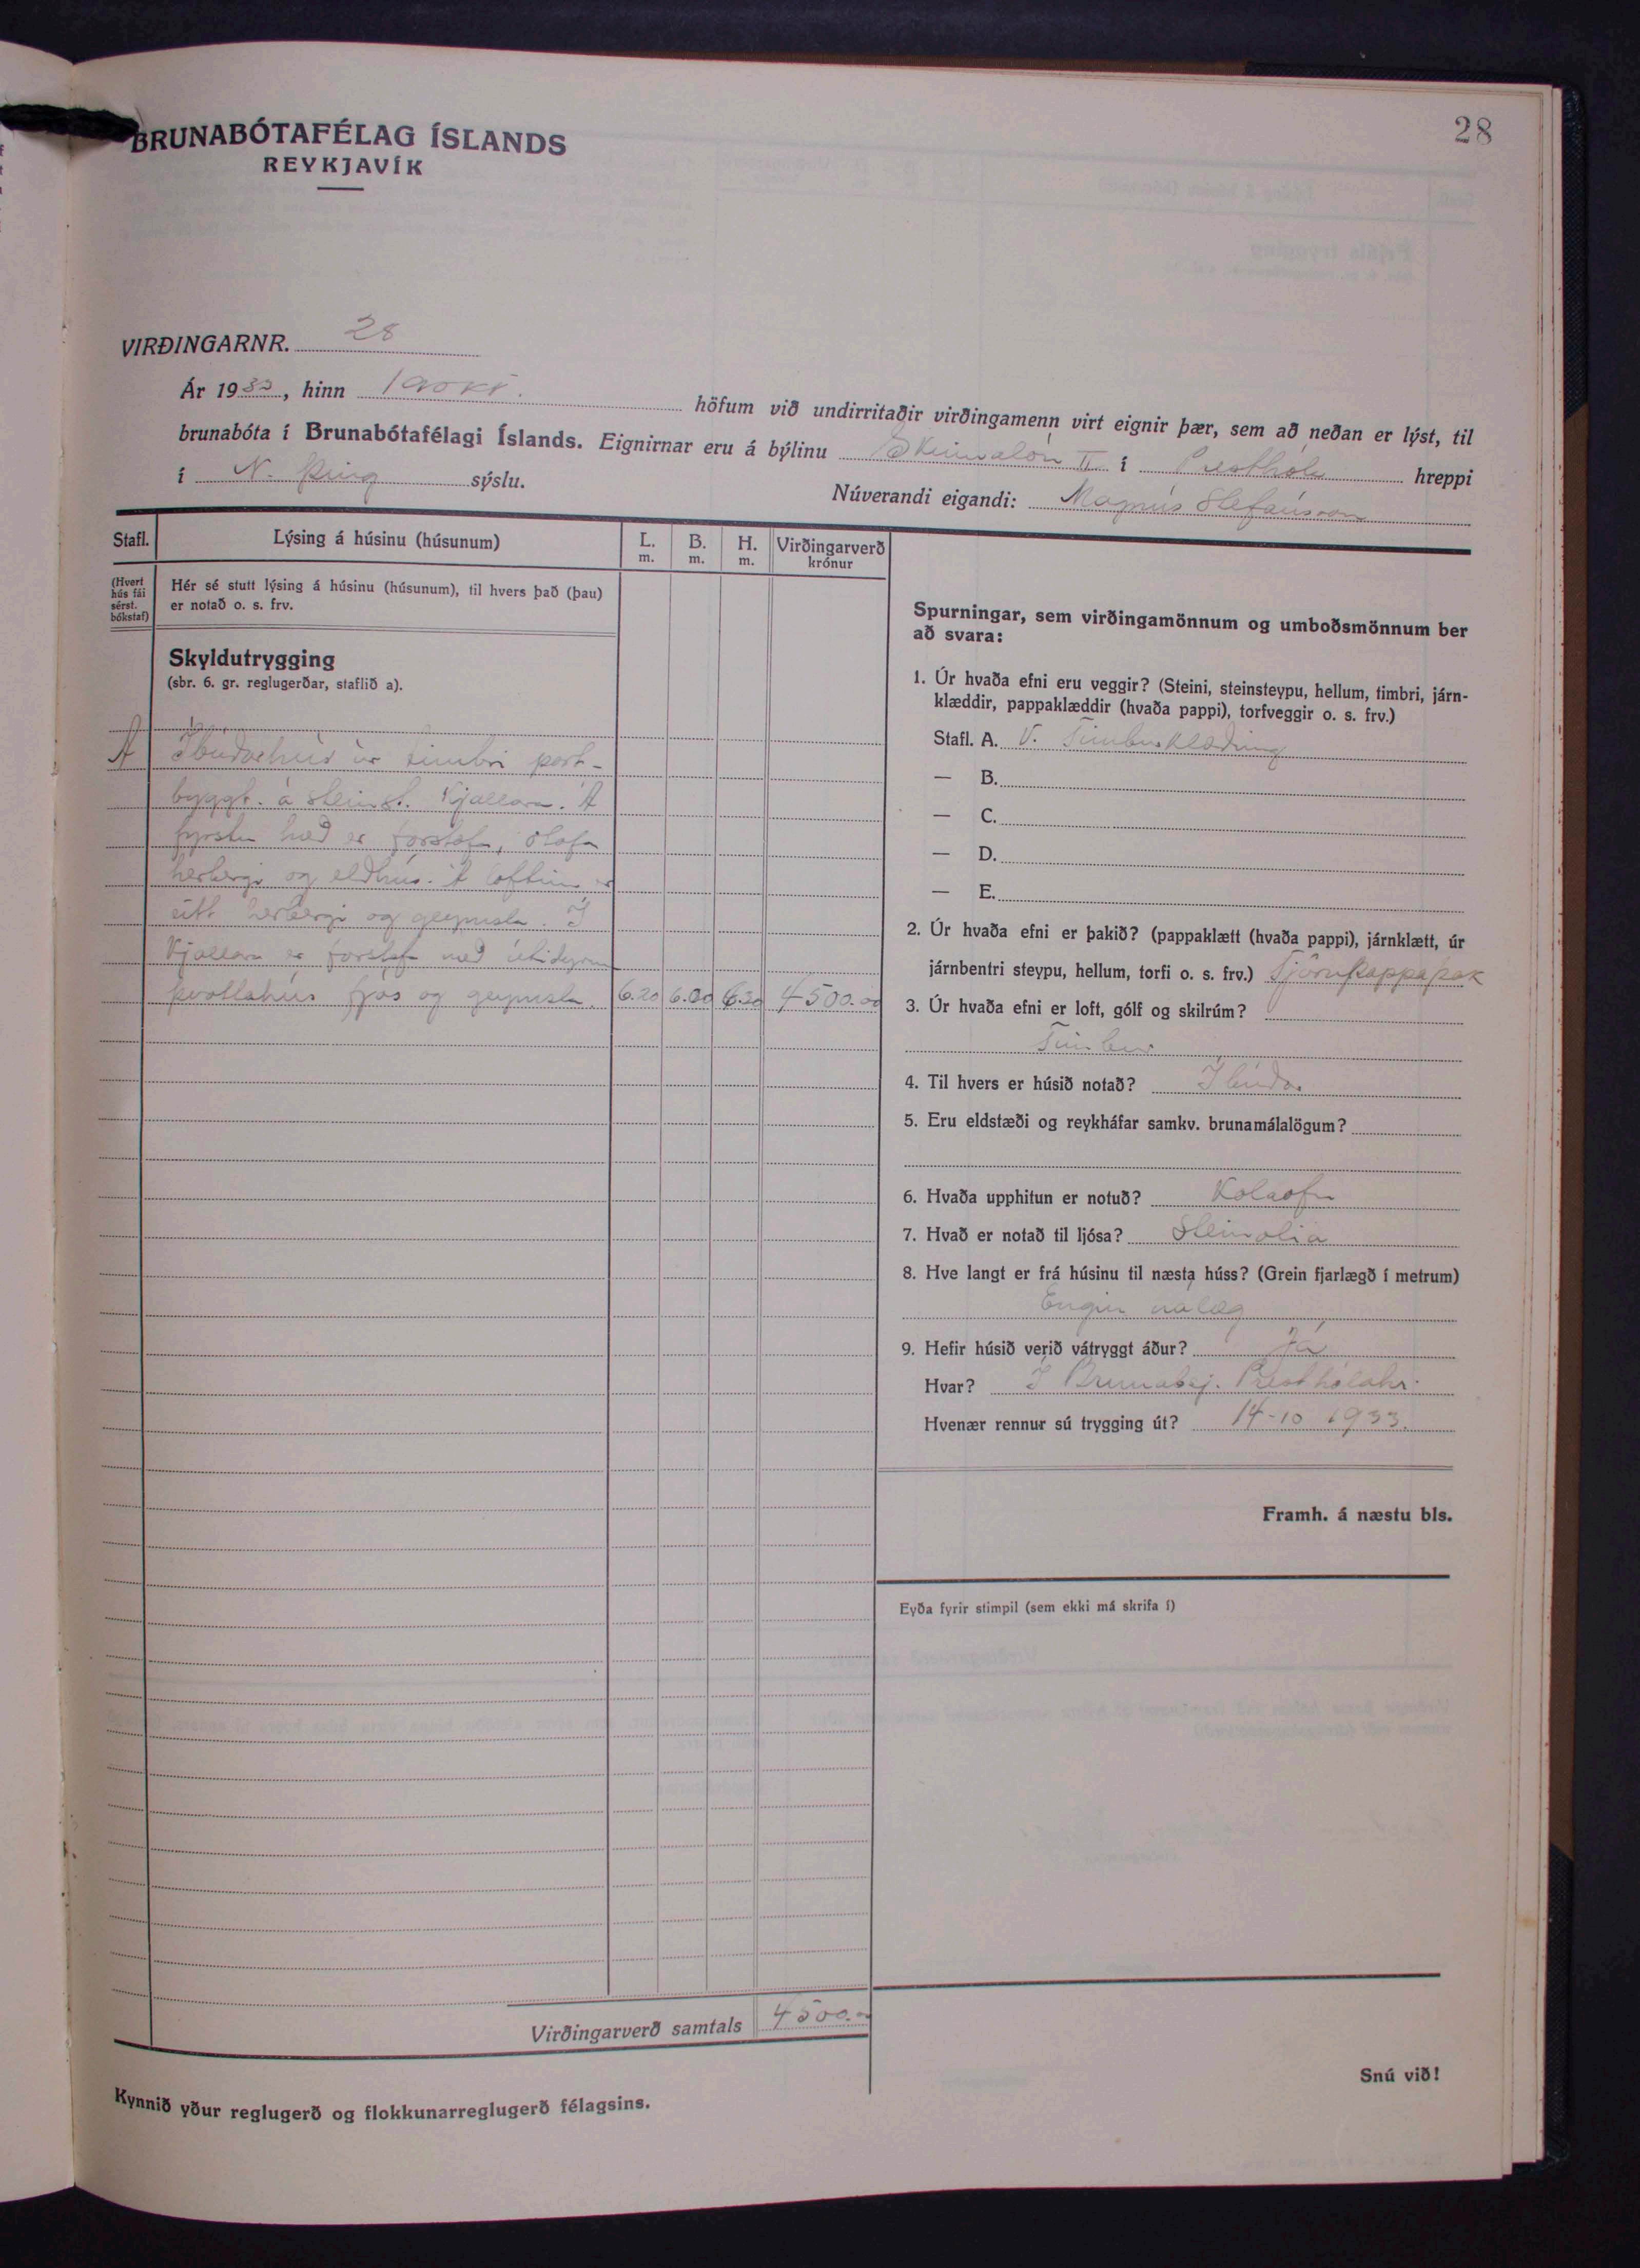 28
BRUNABÓTAFÉLAG ÍSLANDS
REYKJAVÍK
VIRÐINGARNR. 28
Ár 1933, hinn okt.
höfum við undirritaðir virðingamenn virt eignir þær, sem að neðan er lýst, til
brunabóta í Brunabótafélagi Íslands. Eignirnar eru á býlinu Skinnalón II í Presthóla hreppi
í N. Þing sýslu.
Núverandi eigandi: Magnús Stefánsson
Stafl.
Lýsing á húsinu (húsunum)
L. m.
B. m.
H. m.
Virðingarverð krónur
(Hvert hús fái sérst. bókstaf)
Hér sé stutt lýsing á húsinu (húsunum), til hvers það (þau)
er notað o. s. frv.
Skyldutrygging
(sbr. 6. gr. reglugerðar, staflið a).
A Íbúðarhús úr timbri port-
byggt. á steinst. Kjallara. Á
fyrstu hæð er forstofa, stofa
herbergi og eldhús. Á loftinu er
eitt herbergi og geymsla. Í
Kjallara er forstofa með útidyrum
þvottahús fjós og geymsla. 6.20 6.00 6.20 4500.00
Virðingarverð samtals 4500.00
Kynnið yður reglugerð og flokkunarreglugerð félagsins.
Spurningar, sem virðingamönnum og umboðsmönnum ber
að svara:
1. Úr hvaða efni eru veggir? (Steini, steinsteypu, hellum, timbri, járn-
klæddir, pappaklæddir (hvaða pappi), torfveggir o. s. frv.)
Stafl. A. V. Timburklæðning
— B.
— C.
— D.
— E.
2. Úr hvaða efni er þakið? (pappaklætt (hvaða pappi), járnklætt, úr
járnbentri steypu, hellum, torfi o. s. frv.) Tjörupappaþak
3. Úr hvaða efni er loft, gólf og skilrúm?
Timbur
4. Til hvers er húsið notað? Íbúðar
5. Eru eldstæði og reykháfar samkv. brunamálalögum?
6. Hvaða upphitun er notuð? Kolaofn
7. Hvað er notað til ljósa? Steinolía
8. Hve langt er frá húsinu til næsta húss? (Grein fjarlægð í metrum)
Engin nálæg
9. Hefir húsið verið vátryggt áður? Já
Hvar? Í Brunabj. Presthólahr.
Hvenær rennur sú trygging út? 14-10 1933.
Framh. á næstu bls.
Eyða fyrir stimpil (sem ekki má skrifa í)
Snú við!